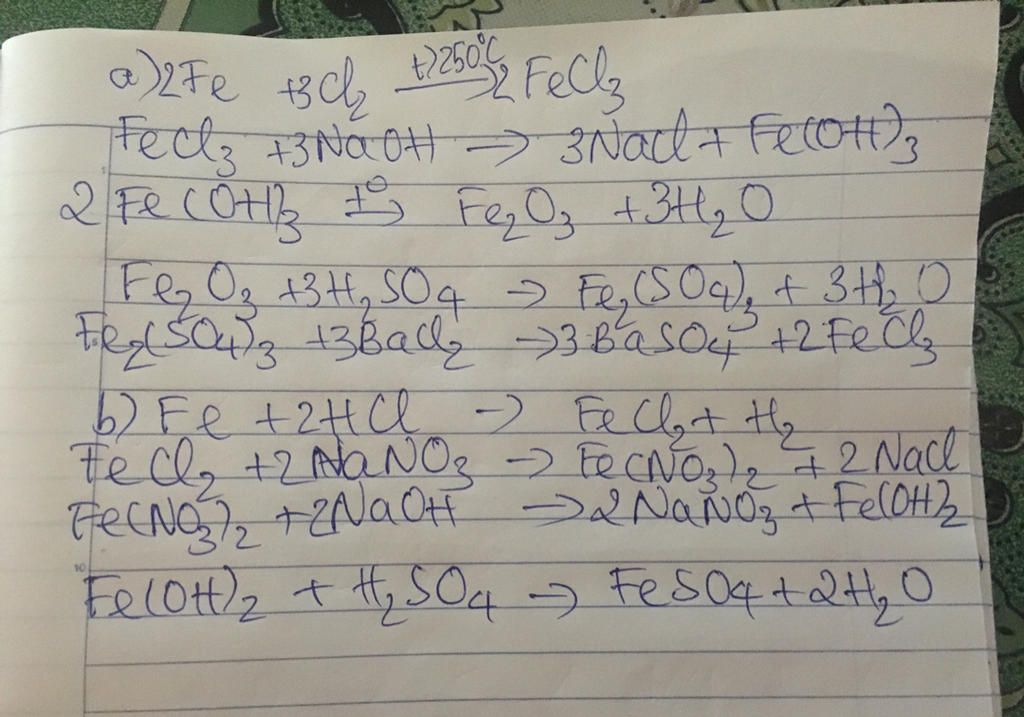 a) 2Fe + 3Cl₂ t>250°C → 2FeCl₃
FeCl₃ + 3NaOH → 3NaCl + Fe(OH)₃
2Fe(OH)₃ t° → Fe₂O₃ + 3H₂O
Fe₂O₃ + 3H₂SO₄ → Fe₂(SO₄)₃ + 3H₂O
Fe₂(SO₄)₃ + 3BaCl₂ → 3BaSO₄ + 2FeCl₃
b) Fe + 2HCl → FeCl₂ + H₂
FeCl₂ + 2NaNO₃ → Fe(NO₃)₂ + 2NaCl
Fe(NO₃)₂ + 2NaOH → 2NaNO₃ + Fe(OH)₂
Fe(OH)₂ + H₂SO₄ → FeSO₄ + 2H₂O